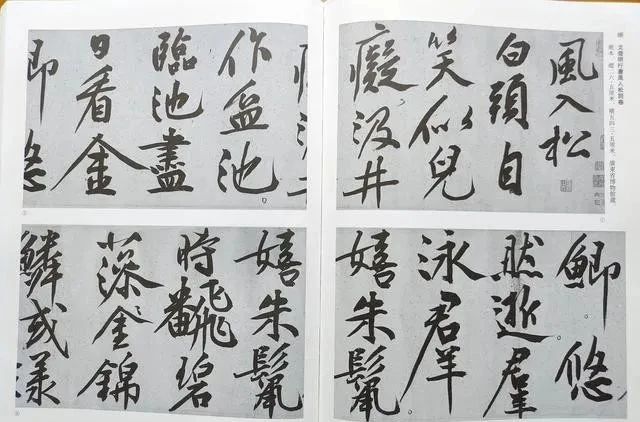 明 文徵明行書風入松詞卷
紙本 縱二六·五厘米 橫五四三·五厘米 廣東省博物館藏
風入松
白頭自
笑似兒
癡汲井
①
作盆池
臨池盡
日看金
②
鯽悠
然逝群
泳群
嬉朱鬣
③
嬉朱鬣
時飜碧
藻金錦
鱗或漾
④